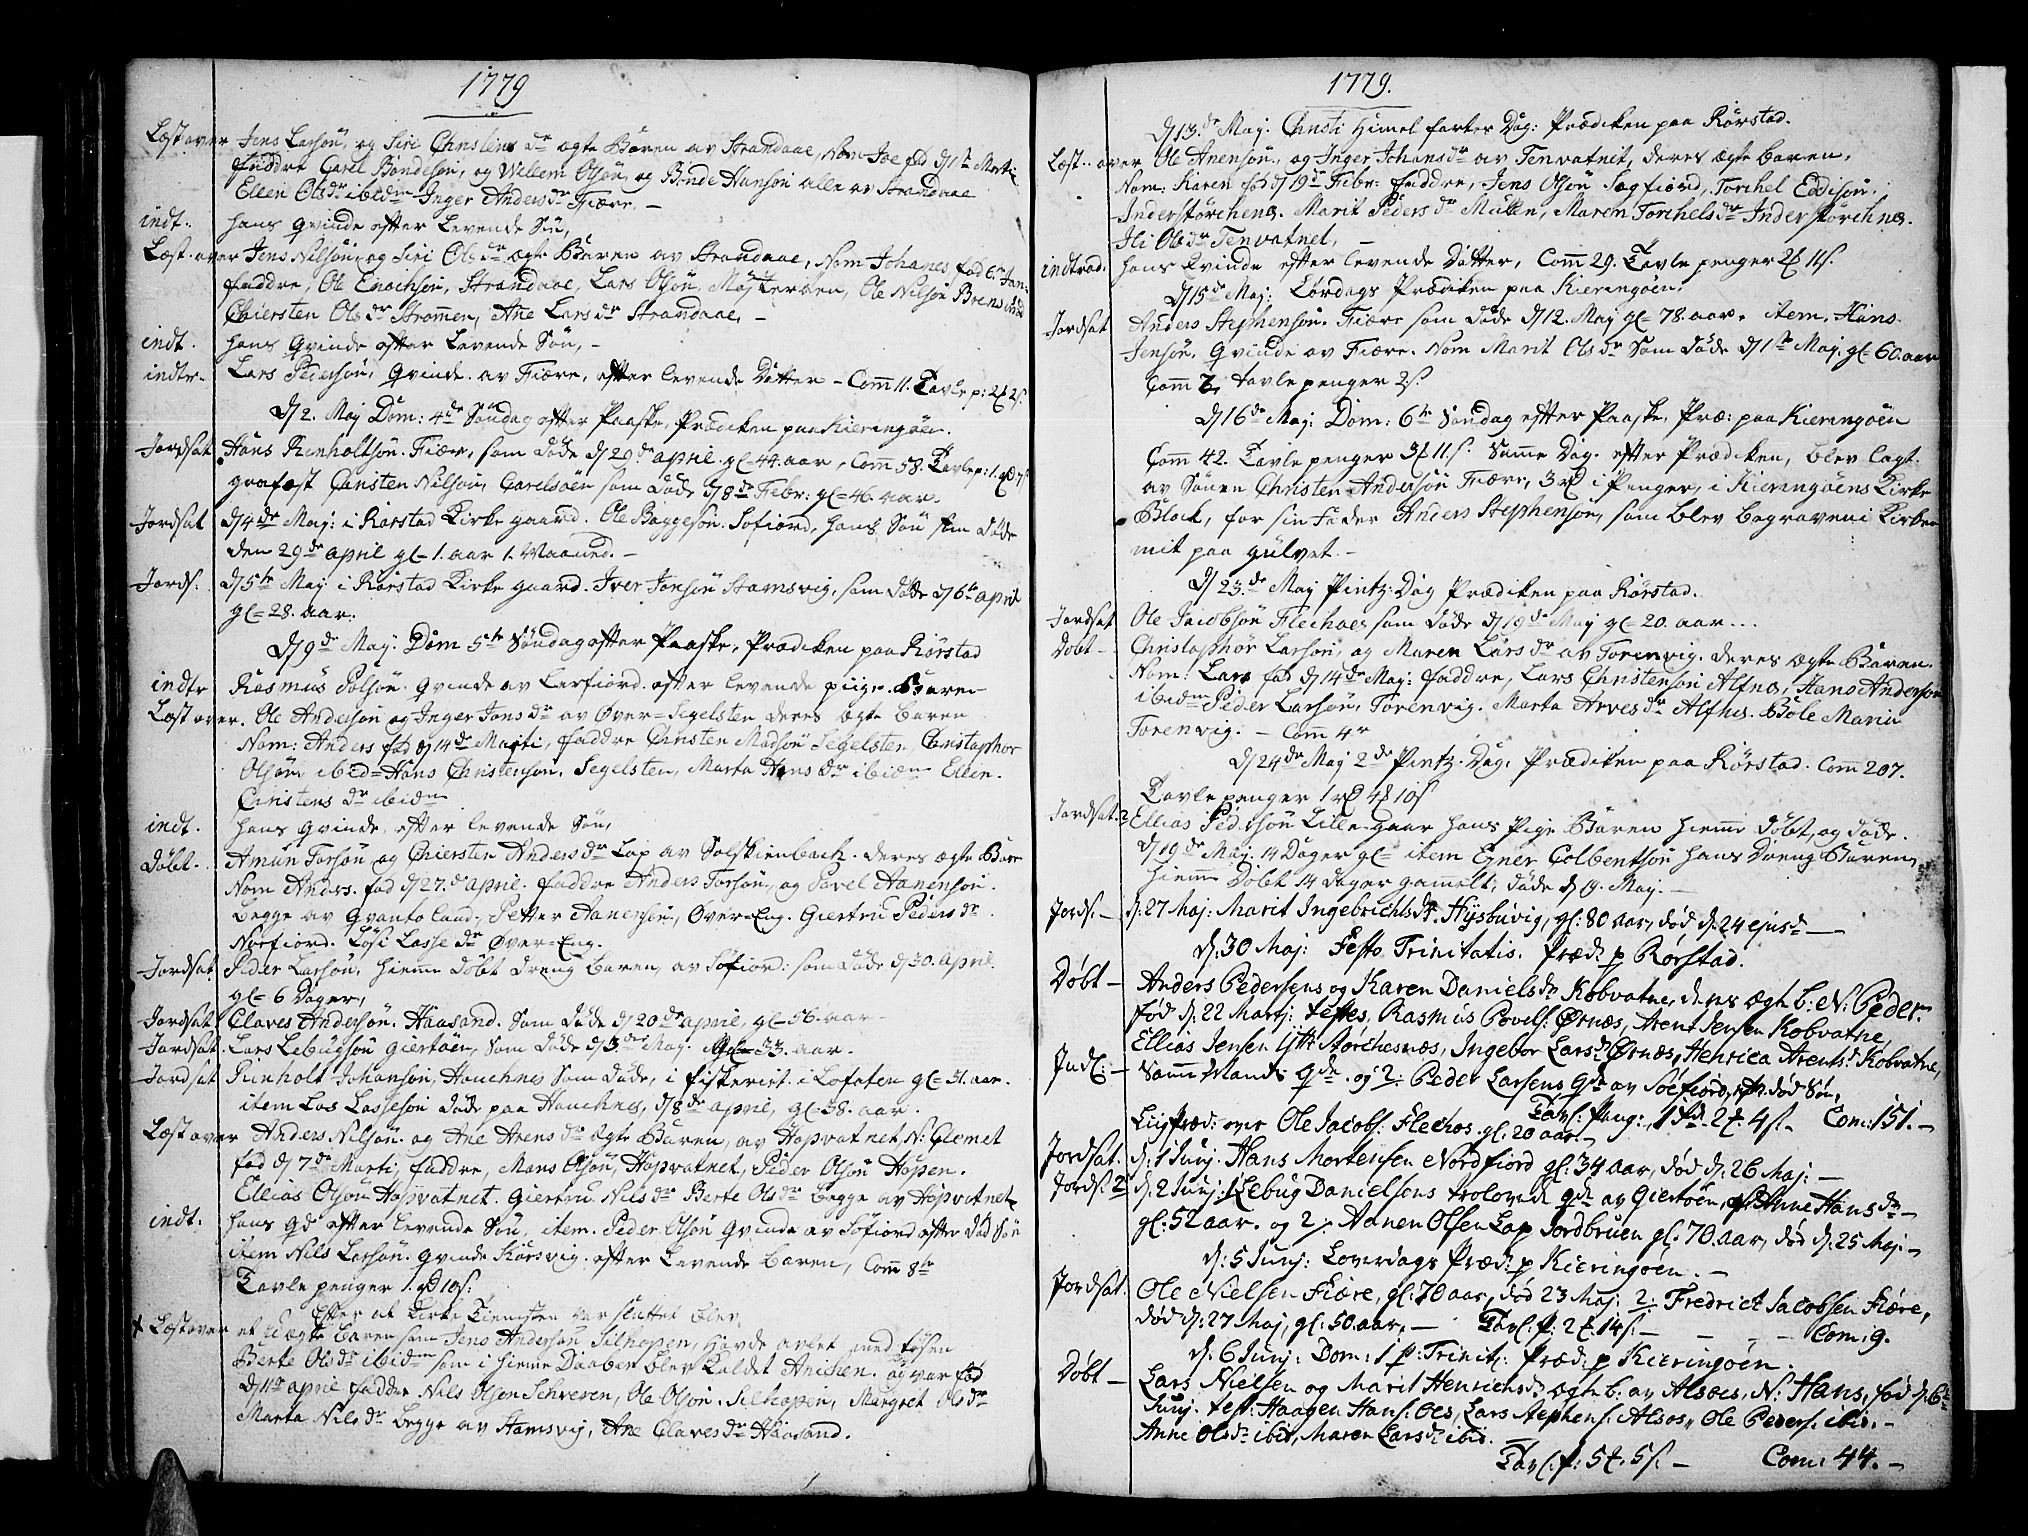 1779
Læst over Jens Larsøn, og Siri Christens dr ægte Baren av Strandaae, Nom Joe fød d 1te Martii
faddre Carel Bondesøn, og Willem Olsøn, og Bonde Hansøn alle av Strandaae
Ellen Olsdr ibidm Inger Andersdr Fiære -
indt. hans qvinde efter Levende Søn,
Læst over Jens Nilsøn og Siri Olsdr ægte Baren av Strandaae, Nom Johanes fød 6te Jan:
faddre, Ole Enochsøn, Strandaae, Lars Olsøn, Ole Nilsøn
Chiersten Olsdr Strømen, Ane Larsdr Strandaae, -
indt. hans qvinde efter Levende Søn, -
indtr. Lars Pedersøn, qvinde av Fiære, efter levende Datter - Comm 11. Tavle p: 2 2s
D 2. Maj Dom: 4de Søndag efter Paaske, Prædiken paa Kieringøen.
Jordsat Hans Rinholtsøn Fiær, som døde d 29de april gl= 44. aar, Comm 58. Tavle p: 1
grafæst Christen Nilsøn, Carelsøen som døde d 8de Febr: gl= 46 aar.
Jordsat d 4de Maj: i Rørstad Kirke gaard. Ole Baggesøn Sofiord, hans Søn som døde
den 29de april gl= 1. aar 1. Maaned. -
Jords: d 5te Maj i Rørstad Kirke gaard. Iver Jonsøn Stamsvig, som døde d 6te april
gl= 28. aar.
D 9de Maj: Dom 5te Søndag efter Paaske, Prædiken paa Rørstad
indtr Rasmus Polsøn qvinde av Lerfiord efter levende piige Baren
Læst over. Ole Andersøn og Inger Jonsdr av Øver=Segelsten deres ægte baren
Nom: Anders fød d 14de Marti, faddre Christen Madsøn Segelsten, Christophor
Olsøn, ibid= Hans Christensøn, Segelsten, Marta Hansdr ibidm Ellen
Christensdr ibidm
indt. hans qvinde efter levende Søn,
Døbt. Amun Torsøn og Chiersten Andersdr Lap av Solskienbach. deres ægte Bare
Nom Anders fød d 27de april. faddre Anders Torsøn, og Povel Aanensøn
begge av qvanto land, Petter Aanensøn, Øver=Eng. Giertru Pedersdr
Norfiord. Losi Lassedr Øver=Eng.
Jordsat Peder Larsøn, hieme døbt dreng baren, av Sofiord: som døde d 30. april
gl= 6 Dager,
Jordsat Claves Andersøn. Haasand. som døde d 20de april, gl= 56. aar.
Jordsat Lars Lebugsøn Giertøen, som døde d 3die Maj gl= 33. aar.
Jordsat Rinholt Johansøn, Hauchnes som døde, i fiskeriet i Lofoten gl= 31. aar.
item Lars Lassesøn døde paa Hauchnes, d 8de april, gl= 38. aar.
Læst over Anders Nilsøn og Ane Arensdr ægte Baren, av Hopvatnet N: Clemet
fød d 7de Marti, faddre, Mons Olsøn, Hopvatnet, Peder Olsøn Hopen.
Ellias Olsøn Hopvatnet. Giertru Nilsdr Berte Olsdr begge av Hopvatnet
indt. hans qd efter levende Søn, item Peder Olsøn qvinde av Sofiord efter død Søn
item Nils Larsøn qvinde Korsvig, efter levende baren, Comm 8te
Tavle penger 1. 10s:
Efter at Kirke Tienesten var sluttet blev
x Læst over et uægte baren som Jens Andersøn Silhopen, hafde avlet med tøsen
Berte Olsdr ibidm som i hieme Daaben blev kaldet Anichen. og var fød
d 11te april faddre Nils Olsøn Schveren, Ole Olsøn Silhopen, Margret Olsdr
Marta Nilsdr begge av Stamsvig, Ane Clavesdr Haasand.
1779.
D 13de Maj. Christi Himel fartes Dag: Prædiken paa Rørstad.
Læst over Ole Anensøn, og Inger Johansdr av Tenvatnit, deres ægte baren,
Nom: Karen fød d 19de Febr: faddre, Jens Olsøn Sagfiord, Torchel Eddisøn
Inderstørchenes. Marit Pedersdr Mulen, Maren Torchelsdr Inderstørchnes.
Ili Olsdr Tenvatnet, -
indtrad. hans Qvinde efter levende Datter, Comm 29. Tavle penger 2 11s.
D 15de Maj: Lørdags Prædiken paa Kieringøen.
Jordsat Anders Stephensøn. Fiære som døde d 12. Maj gl= 78. aar. item. Hans
Jensøn. Qvinde av Fiære. Nom Marit Olsdr som døde d 1te Maj. gl= 60. aar
Comm 7, tavle penger 2s.
D 16de Maj: Dom: 6te Søndag efter Paaske, Præ: paa Kieringøen
Comm 42. Tavle penger 3 11s. Same Dag efter Prædiken, blev lagt
av Sønen Christen Andersøn Fiære, 3 rd i Penger, i Kieringøens Kirke
Block, for sin Fader Anders Stephensøn, som blev begraven i Kirken
mit paa gulvet. -
D 23de Maj Pintz Dag Prædiken paa Rørstad.
Jordsat Ole Jacobsøn Flechaes som døde d 19de Maj gl= 20. aar...
Døbt - Christophor Larsøn, og Maren Larsdr av Torenvig. deres ægte Baren.
Nom: Lars fød d 14de Maj: faddre, Lars Christensøn Alfnes, Hans Andersøn
ibidm Peder Larsøn, Torenvig. Marta Arvesdr Alfnes. Bole Maria
Torenvig. - Comm 4r
D 24de Maj 2de Pintz Dag, Prædiken paa Rørstad. Comm 207.
Tavle penger 1 rd 4 10s
Jordsat. 2 Ellias Pedersøn Lille gaar hans Pige Baren hieme døbt, og døde
d 19de Maj. 14 Dager gl= item Egner Colbentsøn hans Dreng Baren,
hieme døbt 14 dager gammelt, døde d 19. Maj. -
Jords. - d: 27 Maj: Marit Ingebrichtsdr. Hysbuvig, gl: 80 aar, død d: 24 ejusd -
d: 30 Maj: Festo Trinitatis. Præd: p Rørstad.
Døbt - Anders Pedersens og Karen Danielsdr Kobvatne, deres ægte b: N: Peder
fød d: 22 Martj: testes, Rasmus Povels: Ørnæs, Arent Jensen Kobvatne,
Ellias Jensen ytt Størchesnæs, Ingebor Larsdr Ørnæs, Henrica Arentsd Kobvatne,
Indl: - Samme Mands Qde. og 2: Peder Larsens Qde av Søefiord, død Søn,
Tavl: Peng: 1 rd. 2. 4s. Com: 151. -
Liigpræd: over Ole Jacobs: Flechos gl: 20 aar. -
Jordsat. d: 1 Junj. Hans Mortensen Nordfiord gl: 34 aar, død d: 26 Maj: -
Jords: 2 d: 2 Junj: 1 Lebug Danielsøns trolovede Qde av Giertøen, Anne Hansdr -
gl: 52 aar. og 2/. Aanen Olsen Lap Jordbruen gl: 70. aar, død d: 25 Maj -
d: 5 Junj: Løverdags Præd: p Kieringøen. -
Jordsat: Ole Nielsen Fiære, gl: 70 aar, død 23 Maj: 2: Fredrick Jacobsen Fiære,
død d: 27 Maj, gl: 50. aar. - Tavl: p: 2. 14s. - Com: 9.
d: 6 Junj: Dom: 1 p: Trinit: Præd: p Kieringøen.
Døbt - Lars Nielsen og Marit Henrichsdr ægte b: av Alsoes, N: Hans, fød d: 6te
Junj. test: Haagen Hans: Oes, Lars Stephens: Alsos, Ole Peders: ibid: -
Anne Olsdr ibid, Maren Larsdr ibid.
Tavl: p: 5. 5s. - Com: 44. -